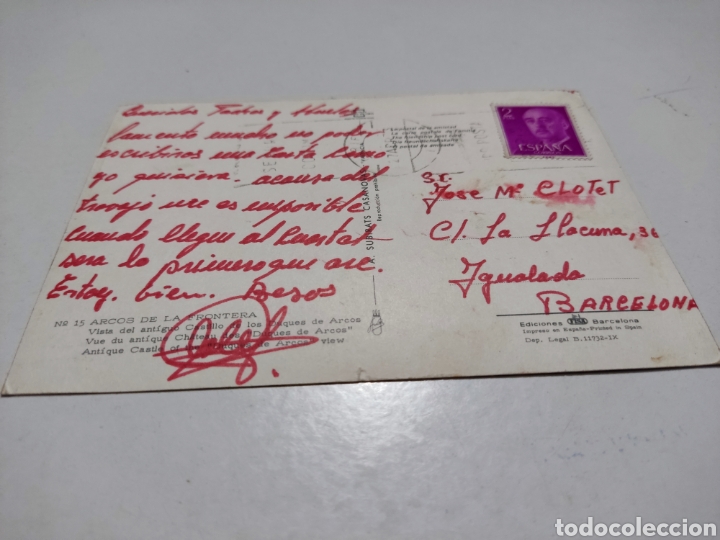 y Abuelos
lamento mucho no poder
escribiros una carta como
yo quisiera. acausa del
trabajo me es imposible
cuando llegue al Cuartel
sera lo primero que are.
Estoy. bien. Besos
Nº 15 ARCOS DE LA FRONTERA
Vista del antiguo Castillo de los Duques de Arcos
Vue du antique Château des "Duques de Arcos"
Antique Castle of Duques de Arcos view
A. SUBIRATS CASANOVAS
2
ESPAÑA
Sr.
JOSE Mª CLOTET
C/. La Llacuna, 36
Igualada
BARCELONA
Ediciones Barcelona
Impreso en España-Printed in Spain
Dep. Legal B. 11732-IX
todocoleccion